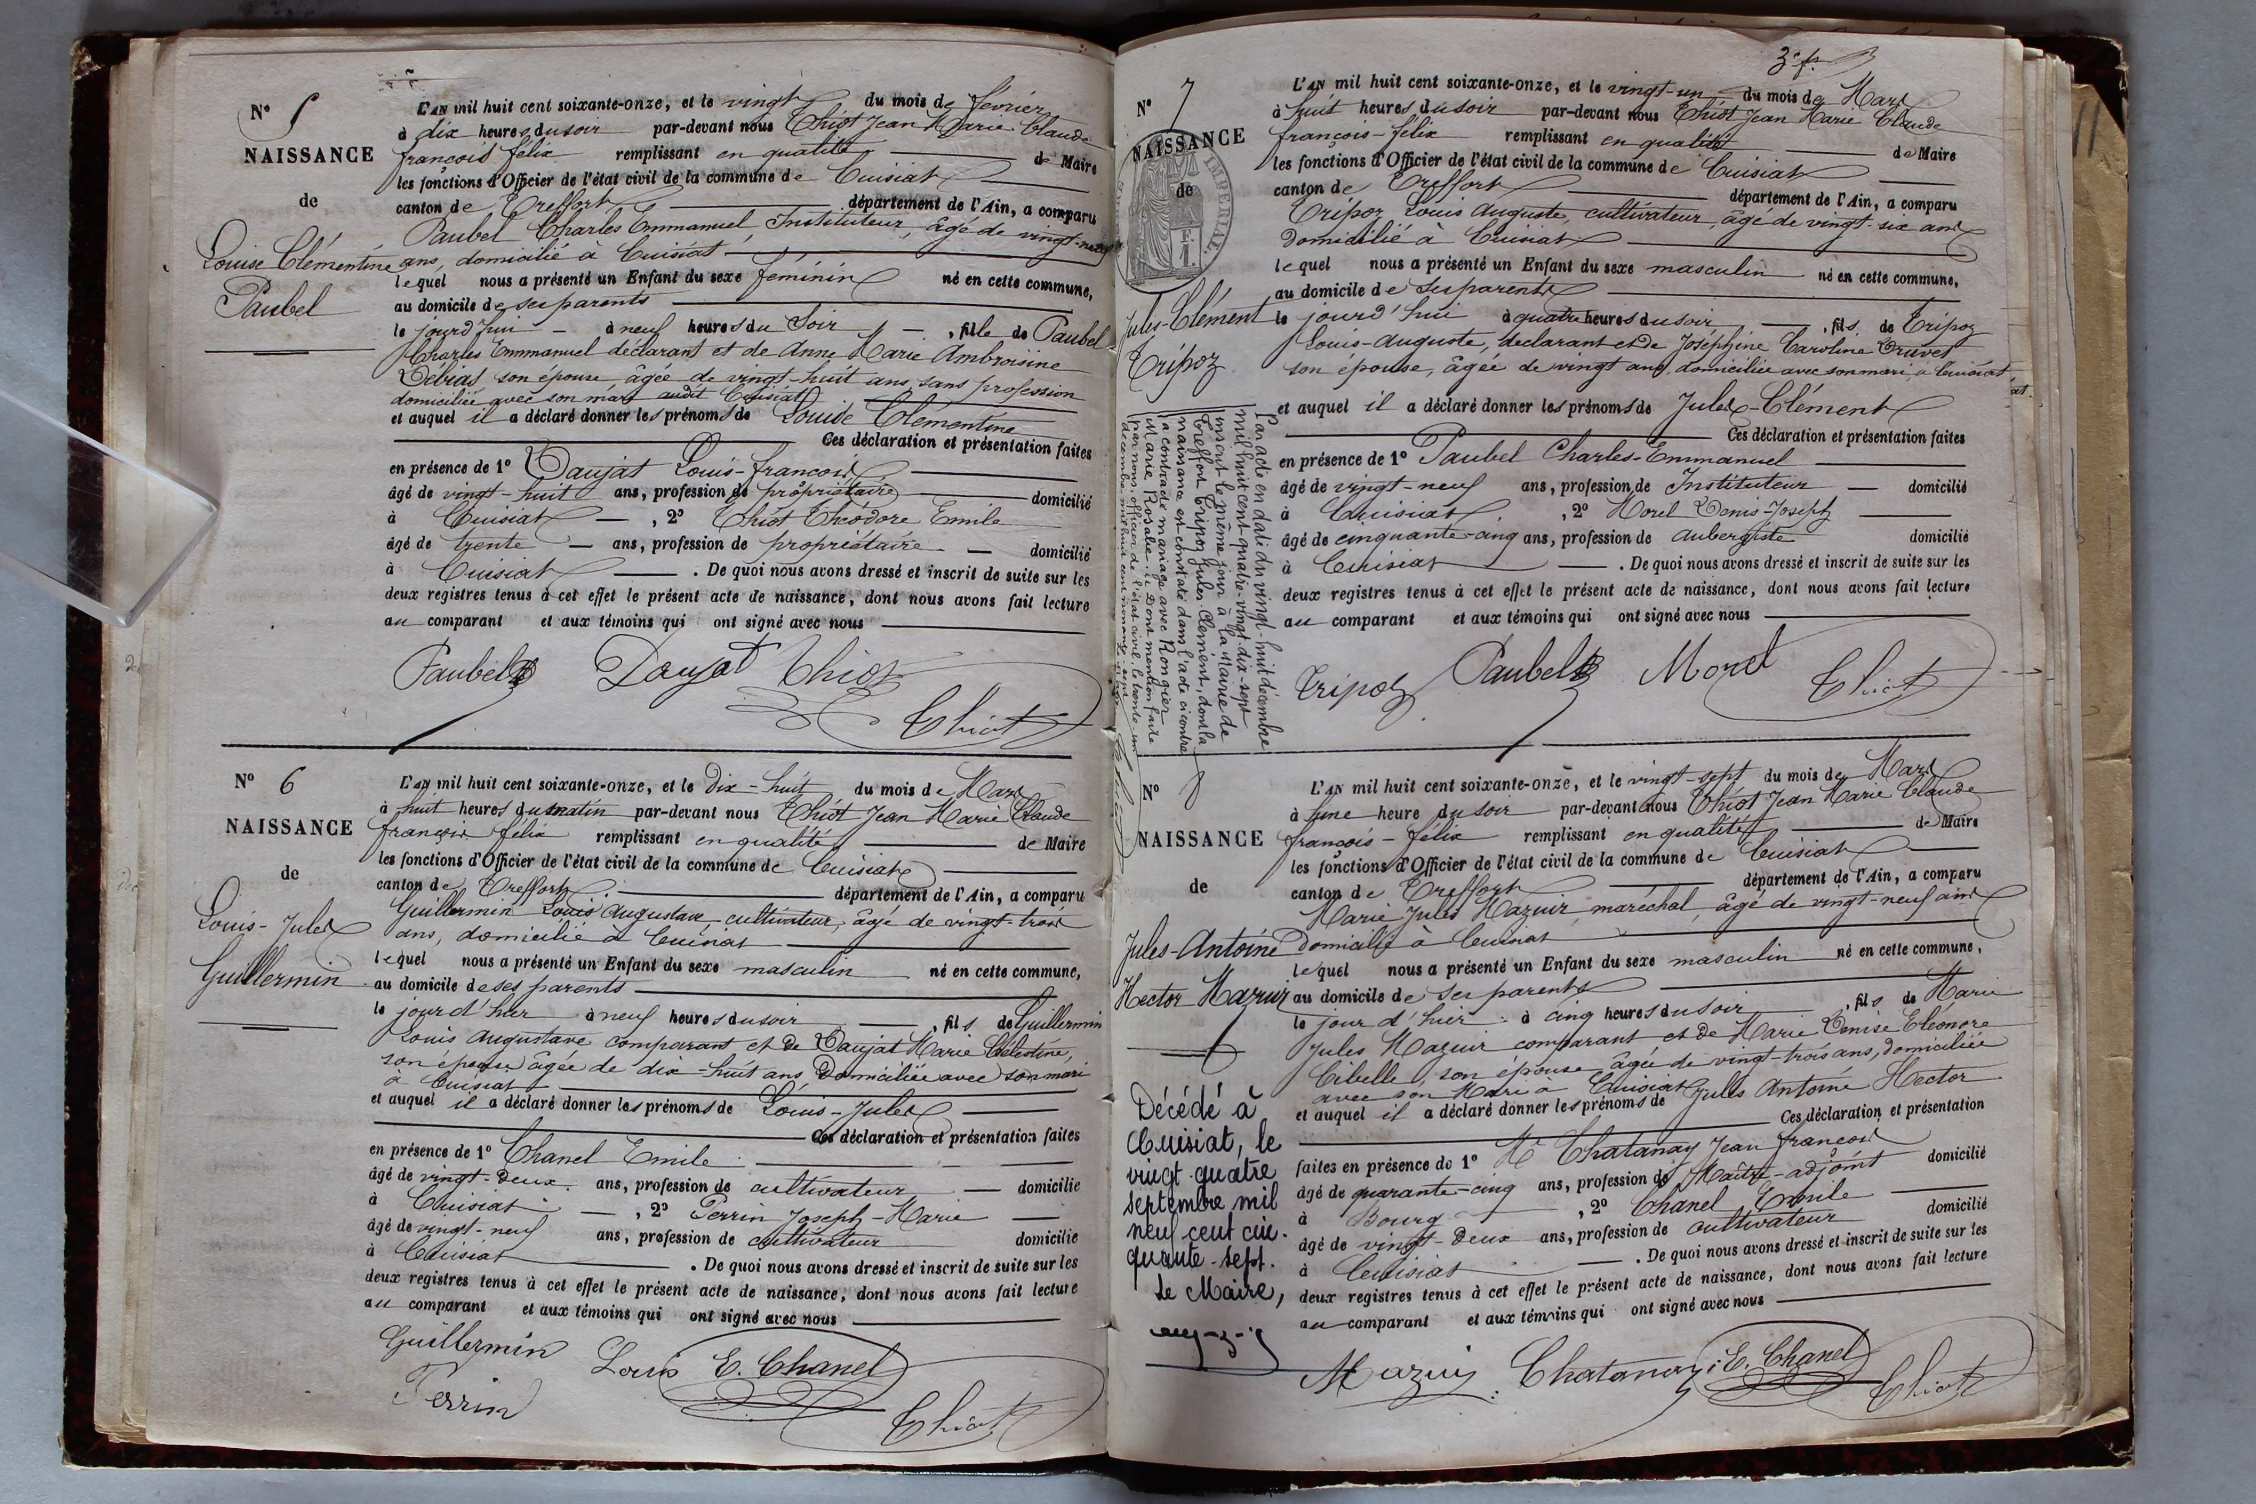 N° 5
NAISSANCE
de
Louise Clémentine
Paubel
L'AN mil huit cent soixante-onze, et le vingt du mois de février
à dix heures du soir par-devant nous Thiot Jean Marie Claude
françois félix remplissant en qualité de Maire
les fonctions d'Officier de l'état civil de la commune de Cuisiat
canton de Treffort département de l'Ain, a comparu
Paubel Charles Emmanuel Instituteur, âgé de vingt-neuf
ans, domicilié à Cuisiat
lequel nous a présenté un Enfant du sexe féminin né en cette commune,
au domicile de ses parents
le jourd'hui à neuf heures du Soir, fille de Paubel
Charles Emmanuel déclarant et de Anne Marie Ambroisine
Débias son épouse âgée de vingt-huit ans sans profession
domiciliée avec son mari audit Cuisiat
et auquel il a déclaré donner les prénoms de Louise Clémentine
Ces déclaration et présentation faites
en présence de 1° Daujat Louis-françois
âgé de vingt-huit ans, profession de propriétaire domicilié
à Cuisiat, 2° Thiot Théodore Emile
âgé de trente ans, profession de propriétaire domicilié
à Cuisiat. De quoi nous avons dressé et inscrit de suite sur les
deux registres tenus à cet effet le présent acte de naissance, dont nous avons fait lecture
au comparant et aux témoins qui ont signé avec nous
Paubel Daujat Thiot
Thiot
N° 6
NAISSANCE
de
Louis-Jules
Guillermin
L'AN mil huit cent soixante-onze, et le Dix-huit du mois de Mars
à huit heures du matin par-devant nous Thiot Jean Marie Claude
françois félix remplissant en qualité de Maire
les fonctions d'Officier de l'état civil de la commune de Cuisiat
canton de Treffort département de l'Ain, a comparu
Guillermin Louis Augustave, cultivateur, âgé de vingt-trois
ans, domicilié à Cuisiat
lequel nous a présenté un Enfant du sexe masculin né en cette commune,
au domicile de ses parents
le jour d'hier à neuf heures du soir, fils de Guillermin
Louis Augustave comparant et de Daujat Marie Célestine,
son épouse âgée de dix-huit ans, Domiciliée avec son mari
à Cuisiat
et auquel il a déclaré donner les prénoms de Louis-Jules
Ces déclaration et présentation faites
en présence de 1° Chanel Emile
âgé de vingt-Deux ans, profession de cultivateur domicilié
à Cuisiat, 2° Perrin Joseph-Marie
âgé de vingt-neuf ans, profession de cultivateur domicilié
à Cuisiat. De quoi nous avons dressé et inscrit de suite sur les
deux registres tenus à cet effet le présent acte de naissance, dont nous avons fait lecture
au comparant et aux témoins qui ont signé avec nous
Guillermin Louis E. Chanel
Perrin Thiot
3e f.
N° 7
NAISSANCE
de
IMPERIAL
Jules-Clément
Tripoz
L'AN mil huit cent soixante-onze, et le vingt-un du mois de Mars
à huit heures du soir par-devant nous Thiot Jean Marie Claude
françois-félix remplissant en qualité de Maire
les fonctions d'Officier de l'état civil de la commune de Cuisiat
canton de Treffort département de l'Ain, a comparu
Tripoz Louis Auguste, cultivateur, âgé de vingt-six ans
Domicilié à Cuisiat
lequel nous a présenté un Enfant du sexe masculin né en cette commune,
au domicile de ses parents
le jourd'hui à quatre heures du soir, fils de Tripoz
Louis-Auguste, déclarant et de Joséphine Caroline Truvet
son épouse, âgée de vingt ans, domiciliée avec son mari, à Cuisiat
et auquel il a déclaré donner les prénoms de Jules-Clément
Ces déclaration et présentation faites
en présence de 1° Paubel Charles-Emmanuel
âgé de vingt-neuf ans, profession de Instituteur domicilié
à Cuisiat, 2° Morel Denis-Joseph
âgé de cinquante-cinq ans, profession de aubergiste domicilié
à Cuisiat. De quoi nous avons dressé et inscrit de suite sur les
deux registres tenus à cet effet le présent acte de naissance, dont nous avons fait lecture
au comparant et aux témoins qui ont signé avec nous
Tripoz Paubel Morel Thiot
Par acte en date du vingt-huit décembre
mil huit cent quatre-vingt-dix-sept
inscrit le même jour à la Mairie de
Treffort Tripoz Jules-Clément, dont la
naissance est constatée dans l'acte ci contre
a contracté mariage avec Rongier
Marie Rosalie. Dont mention faite
par nous, officier de l'état civil, le trente un
décembre mil huit cent
N° 8
NAISSANCE
de
Jules-Antoine
Hector Mazuir
L'AN mil huit cent soixante-onze, et le vingt-sept du mois de Mars
à une heure du soir par-devant nous Thiot Jean Marie Claude
françois-félix remplissant en qualité de Maire
les fonctions d'Officier de l'état civil de la commune de Cuisiat
canton de Treffort département de l'Ain, a comparu
Marie Jules Mazuir, maréchal, âgé de vingt-neuf ans
Domicilié à Cuisiat
lequel nous a présenté un Enfant du sexe masculin né en cette commune,
au domicile de ses parents
le jour d'hier à cinq heures du soir, fils de Marie
Jules Mazuir comparant et de Marie Denise Eléonore
Cibelle, son épouse âgée de vingt-trois ans, domiciliée
avec son Mari à Cuisiat
et auquel il a déclaré donner les prénoms de Jules Antoine Hector
Ces déclaration et présentation
faites en présence de 1° Mr Chatanay Jean françois
âgé de quarante-cinq ans, profession de Maître-adjoint domicilié
à Bourg, 2° Chanel Emile
âgé de vingt-Deux ans, profession de cultivateur domicilié
à Cuisiat. De quoi nous avons dressé et inscrit de suite sur les
deux registres tenus à cet effet le présent acte de naissance, dont nous avons fait lecture
au comparant et aux témoins qui ont signé avec nous
Mazuir Chatanay E. Chanel Thiot
Décédé à
Cuisiat, le
vingt-quatre
septembre mil
neuf cent cin-
quante-sept.
Le Maire,